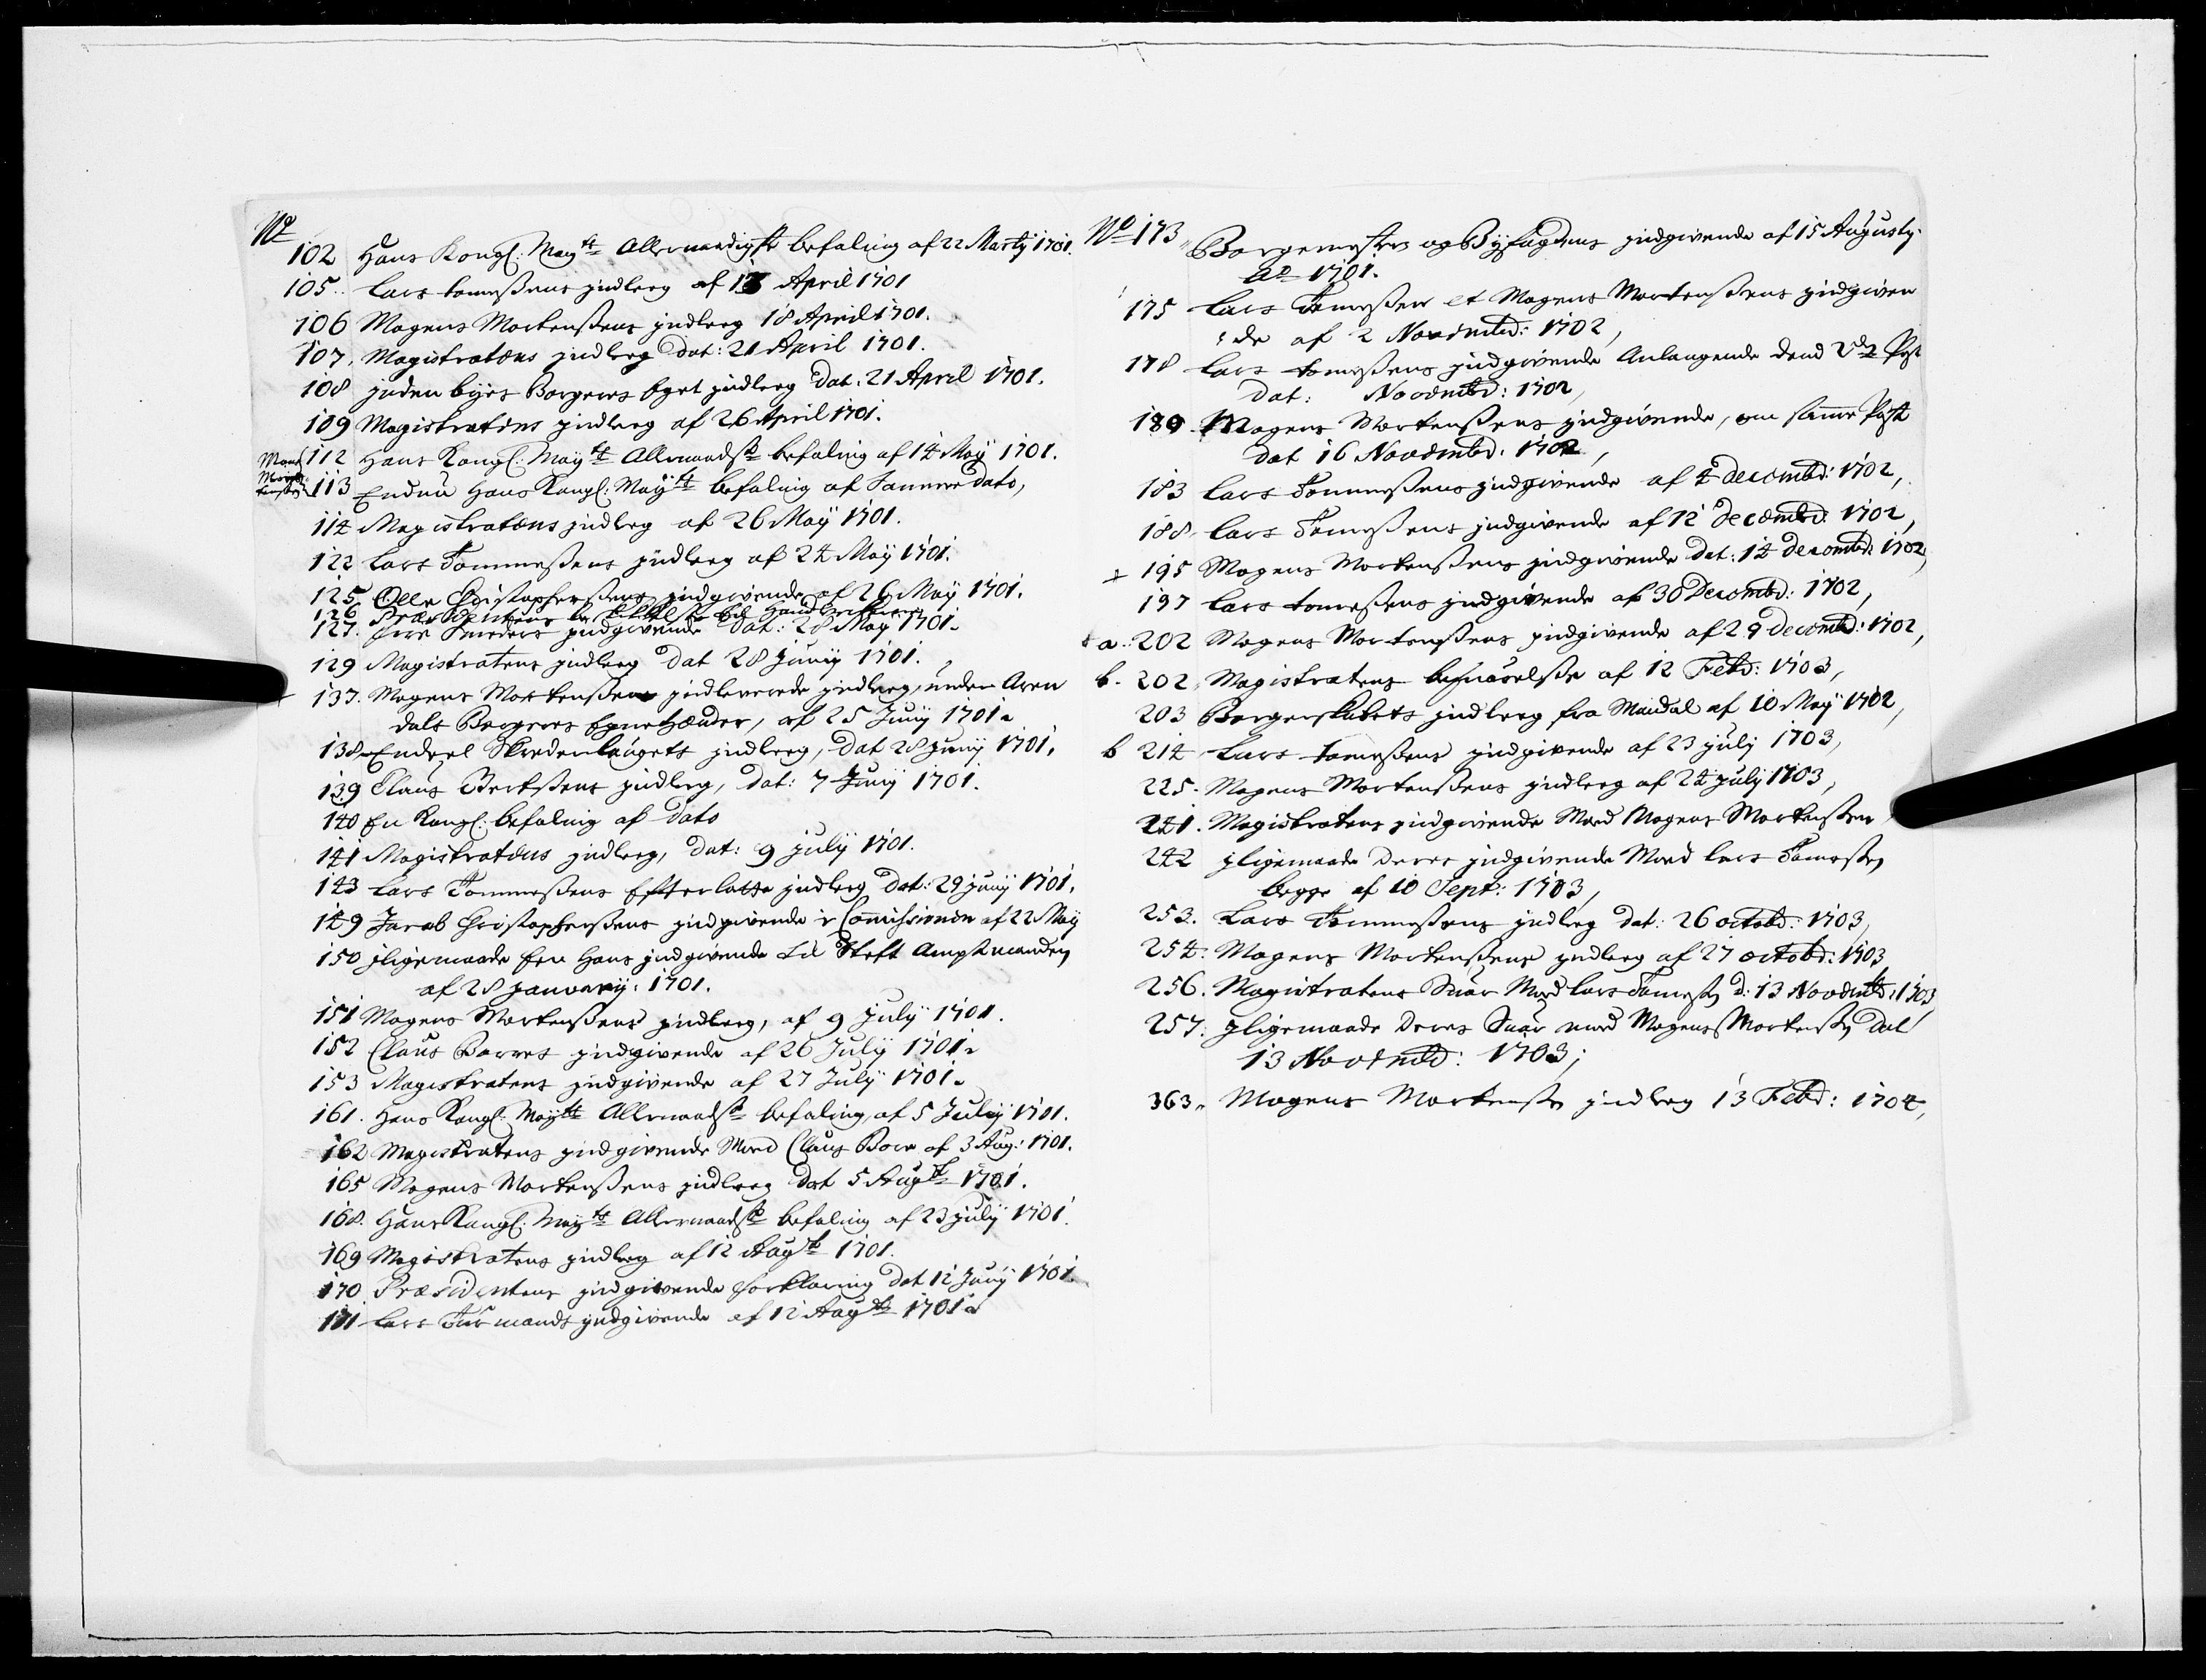 No
102 Hans Kongl: Mayts Allernaadigste befaling af 22 Martj 1701.
105 Lars tomeßens indleeg af 13 April 1701
106 Mogens Mortenßens indleeg 18 April 1701.
107. Magistratens indleeg dat: 21 April 1701.
108 inden byes Borgeres eget indleeg dat. 21 April 1701.
109 Magistratens indleeg af 26 April 1701.
112 Hans Kongl: Mayts Allernaadste befaling af 14 Maÿ 1701.
113 Endnu Hans Kongl: Mayts befaling af Samme dato,
114 Magistratens indleeg af 26 Maÿ 1701.
122 Lars Tommeßens indleeg af 24 Maÿ 1701.
125. Olle Christopherßens indgivende af 26 Maÿ 1701.
126 Præsidentens til Handverkerne
127. Smeders indgivende dat: 28 Maÿ 1701.
129 Magistratens indleeg dat 28 Junij 1701.
137. Mogens Mortenßens indleverede indleeg, under Aren
dals Borgeres Egne hænder, af 25 Junij 1701.
138. Endeel Skredenlaugets indleeg, dat 28 Junij 1701.
139 Claus Bertßens indleeg, dat: 7 Junij 1701.
140 En Kongl: befaling af dato
141 Magistratens indleeg, dat: 9 Julij 1701.
143 Lars Tommeßens Efterlatte indleeg dat: 29 Junij 1701.
149 Jacob Christopherßens indgivende i Commissionen af 22 Maÿ
150 iligemaade En Hans indgivende til Steft Amptmanden
af 28 Januarij: 1701.
151 Mogens Mortenßens indleeg, af 9 Julij 1701.
152 Claus Borres indgivende af 26 Julij 1701.
153 Magistratens indgivende af 27 Julij 1701.
161. Hans Kongl: Mayts Allernaadste befaling, af 5 Julij 1701.
162 Magistratens indgivende Med Claus Bore af 3 Aug: 1701.
165 Mogens Mortenßens indleeg dat 5 Augst 1701.
168. Hans Kongl: Mayts Allernaadste befaling af 23 Julij 1701.
169 Magistratens indleeg af 12 Augst 1701.
170. Præsidentens indgivende forklaring dat 12 Junij 1701.
171 Lars Furmands indgivende af 12 Augst 1701.
No 173 Borgemesters og Byfogdens indgivende af 15 Augustj
Ao 1701.
175 Lars Tomeßen et Mogens Mortenßens indgiven
de af 2 Novembd: 1702,
178 Lars tomeßens indgivende Anlangende dend 2de Post
dat: Novembd: 1702,
180 Mogens Mortenßens indgivende, om samme Post
dat 16 Novembd: 1702,
183 Lars Tommeßens indgivende af 4 decembd: 1702,
188 Lars Tomeßens indgivende af 12 decembd: 1702,
+ 195 Mogens Mortenßens indgivende dat: 14 decembd: 1702,
197 Lars tomeßens indgivende af 30 Decembd: 1702,
+ a. 202 Mogens Mortenßens indgivende af 29 decembd: 1702,
b. 202 Magistratens besuarelse af 12 Febd: 1703,
203 Borgerskabets indleeg fra Mandal af 10 Maÿ 1702,
b 214 Lars tomeßens indgivende af 23 Julj 1703,
225. Mogens Mortenßens indleeg af 24 Julj 1703,
241. Magistratens indgivende Med Mogens Mortenßen
242 iligemaade deres indgivende Med Lars Tomeßen
begge af 10 Sept: 1703,
253. Lars Tommeßens indleeg dat: 26 octobd: 1703,
254: Mogens Mortenßens indleeg af 27 octobd: 1703
256. Magistratens Suar Med Lars Tomeßen d: 13 Novembd: 1703
257: iligemaade deres Suar med Mogens Mortenßen dat
13 Novembd: 1703;
363. Mogens Mortenßen indleeg 13 Febd: 1704,